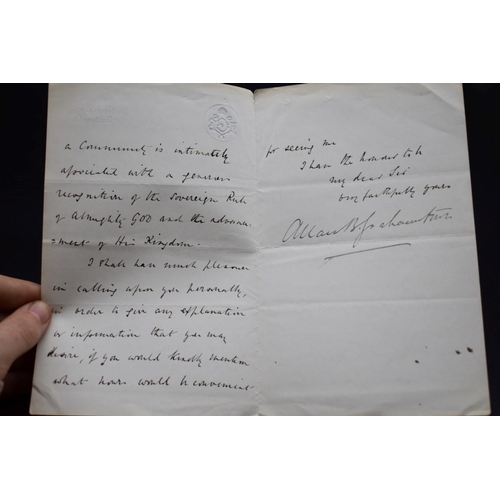 a Community is intimately
associated with a generous
recognition of the Sovereign Rule
of Almighty GOD and the advance
=ment of His Kingdom.
I shall have much pleasure
in calling upon you personally,
in order to give any explanation
or information that you may
desire, if you would kindly mention
what hours would be convenient
for seeing me
I have the honour to be
my dear Sir
very faithfully yours
Allan B.